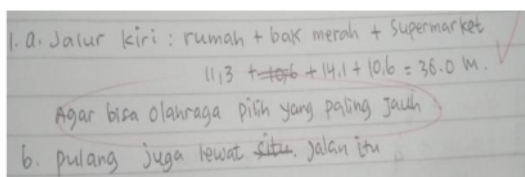 1. a. Jalur kiri : rumah + bak merah + Supermarket
11,3 + 10,6 + 14,1 + 10,6 = 36.0 m.
Agar bisa olahraga pilih yang paling jauh
b. pulang juga lewat situ. Jalan itu